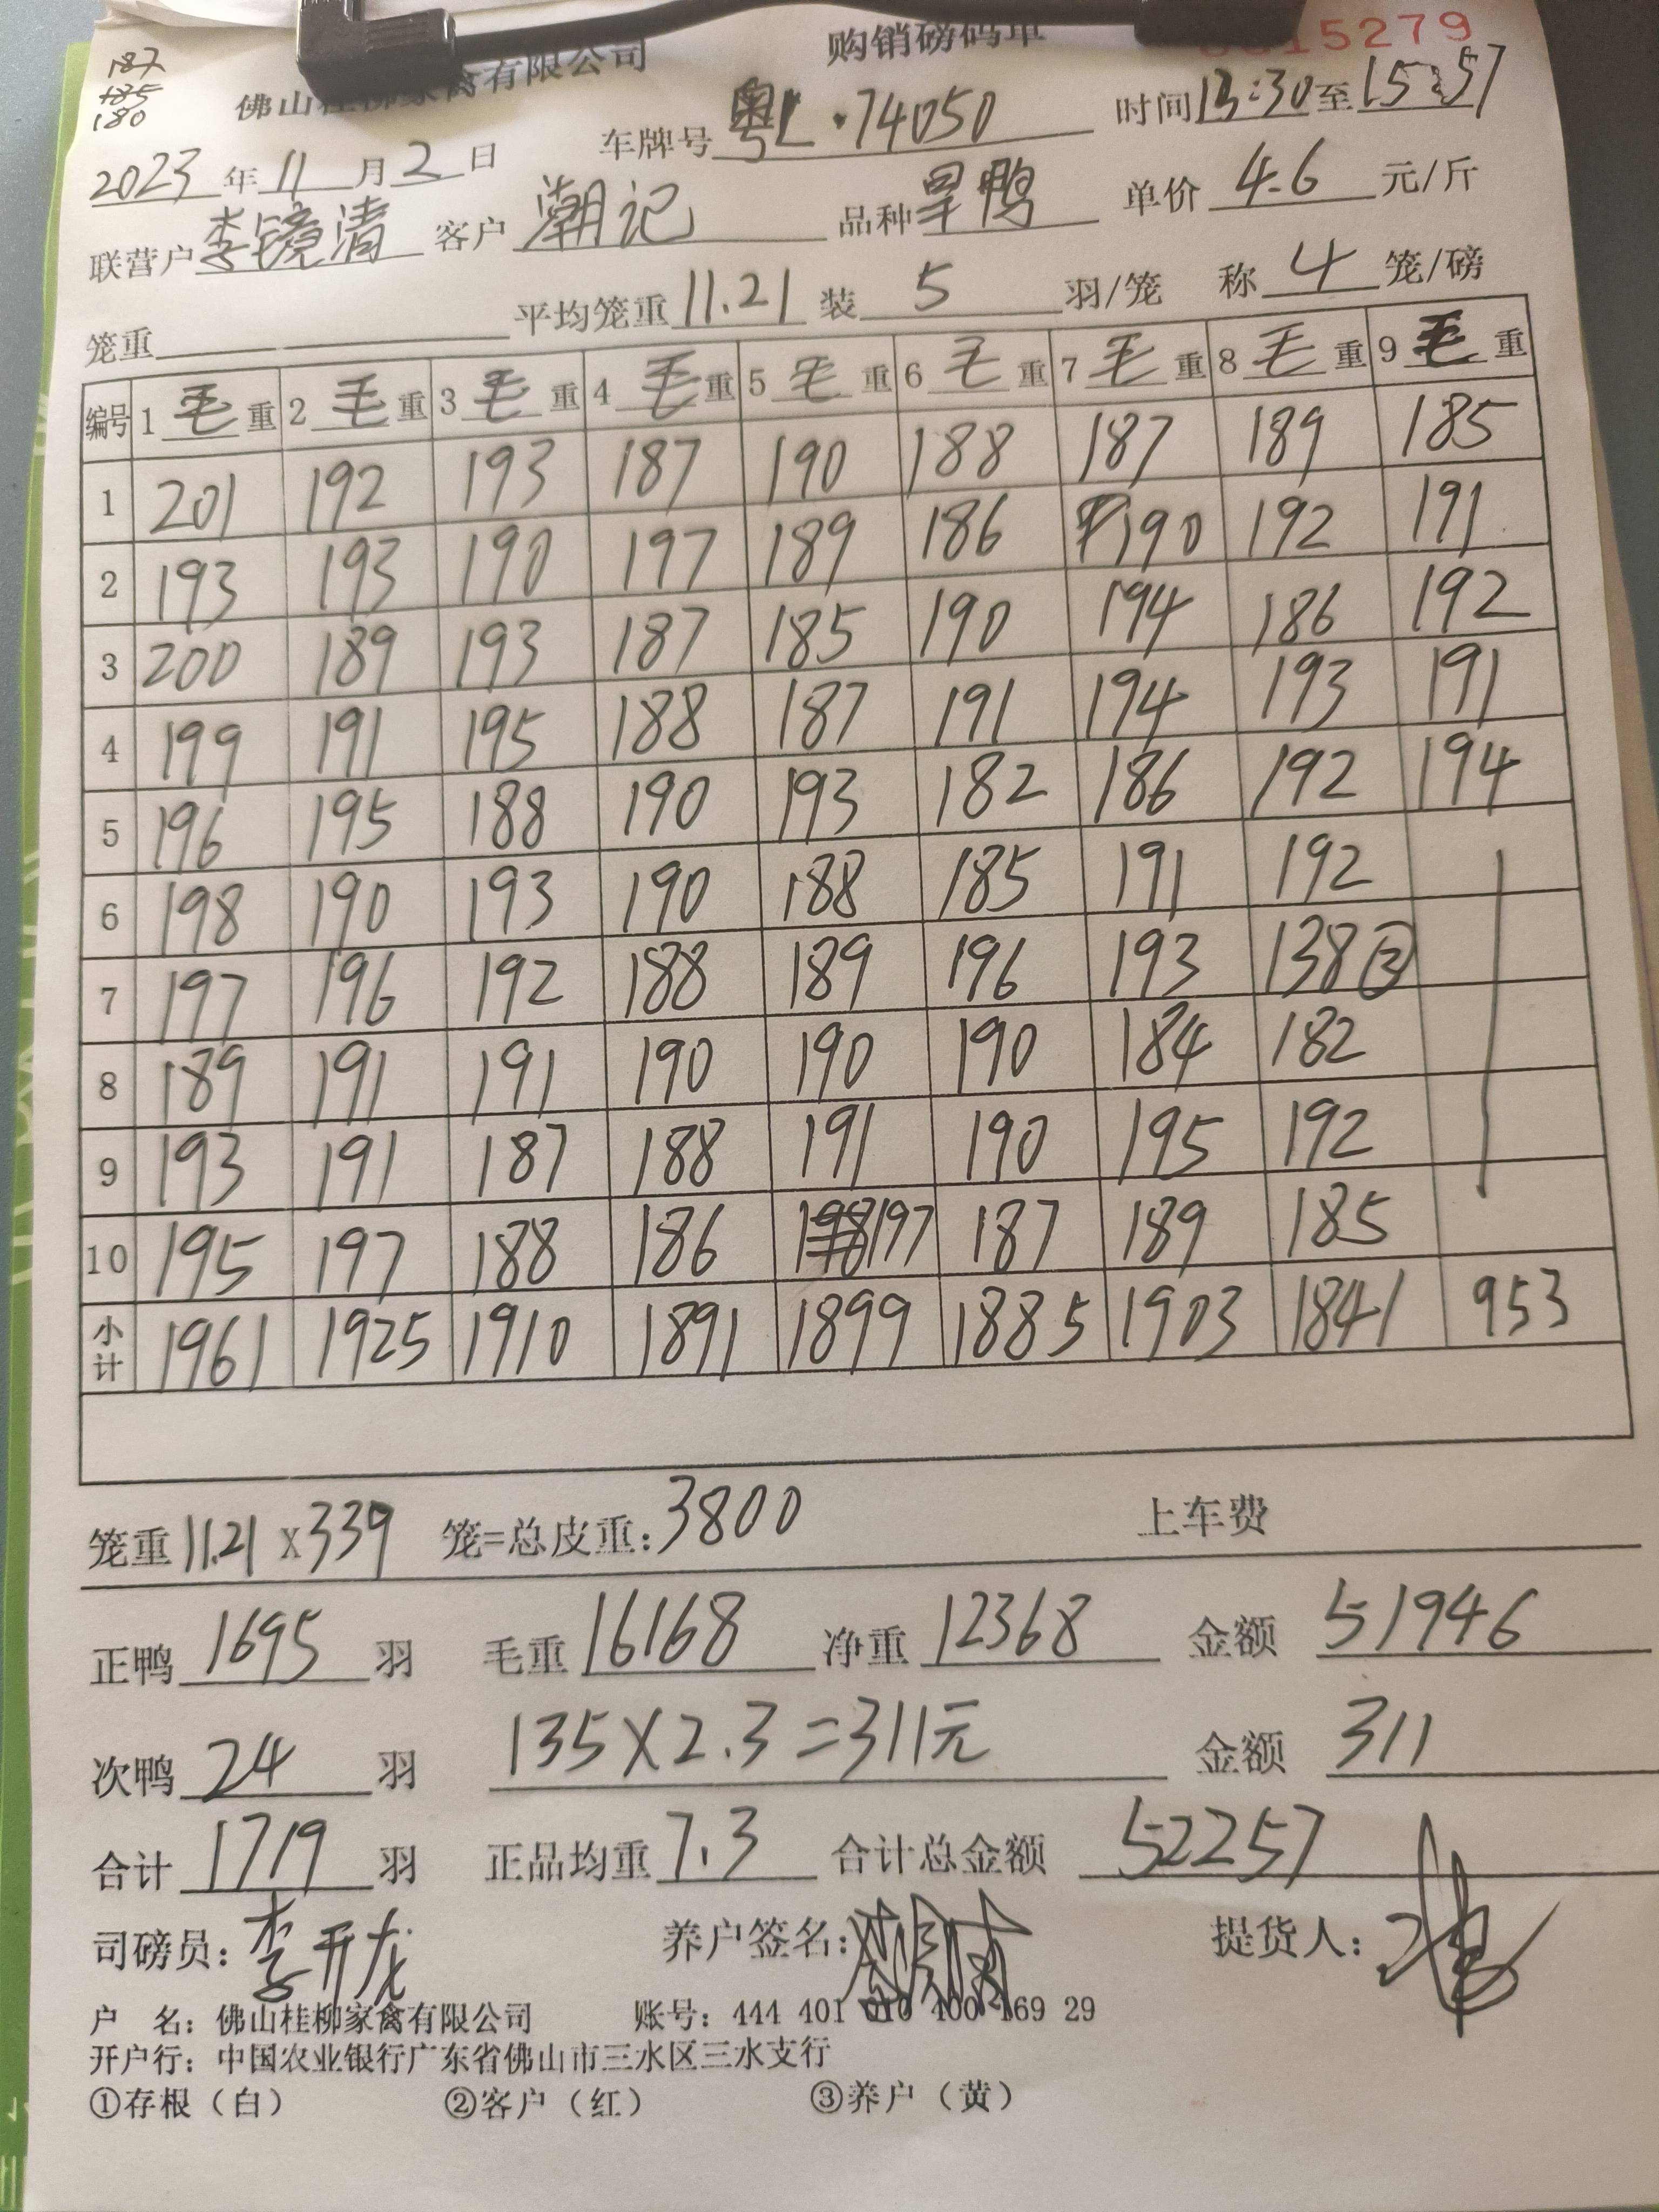 187
185
180
购销磅码单
15279
佛山桂柳家禽有限公司
2023年11月2日 车牌号粤L·74050 时间13:30至15:57
联营户李镜清 客户潮记 品种旱鸭 单价4.6元/斤
笼重 平均笼重11.21装5羽/笼 称4笼/磅
编号 1毛重 2毛重 3毛重 4毛重 5毛重 6毛重 7毛重 8毛重 9毛重
1 201 192 193 187 190 188 187 189 185
2 193 193 190 197 189 186 190 192 191
3 200 189 193 187 185 190 194 186 192
4 199 191 195 188 187 191 194 193 191
5 196 195 188 190 193 182 186 192 194
6 198 190 193 190 188 185 191 192
7 197 196 192 188 189 196 193 138③
8 189 191 191 190 190 190 184 182
9 193 191 187 188 191 190 195 192
10 195 197 188 186 198 197 187 189 185
小计 1961 1925 1910 1891 1899 1885 1903 1841 953
笼重11.21x339 笼=总皮重:3800 上车费
正鸭1695羽 毛重16168 净重12368 金额51946
次鸭24羽 135×2.3=311元 金额311
合计1719羽 正品均重7.3 合计总金额52257
司磅员:李开龙 养户签名: 提货人:
户 名:佛山桂柳家禽有限公司 账号:444 401 010 400 169 29
开户行:中国农业银行广东省佛山市三水区三水支行
①存根(白) ②客户(红) ③养户(黄)